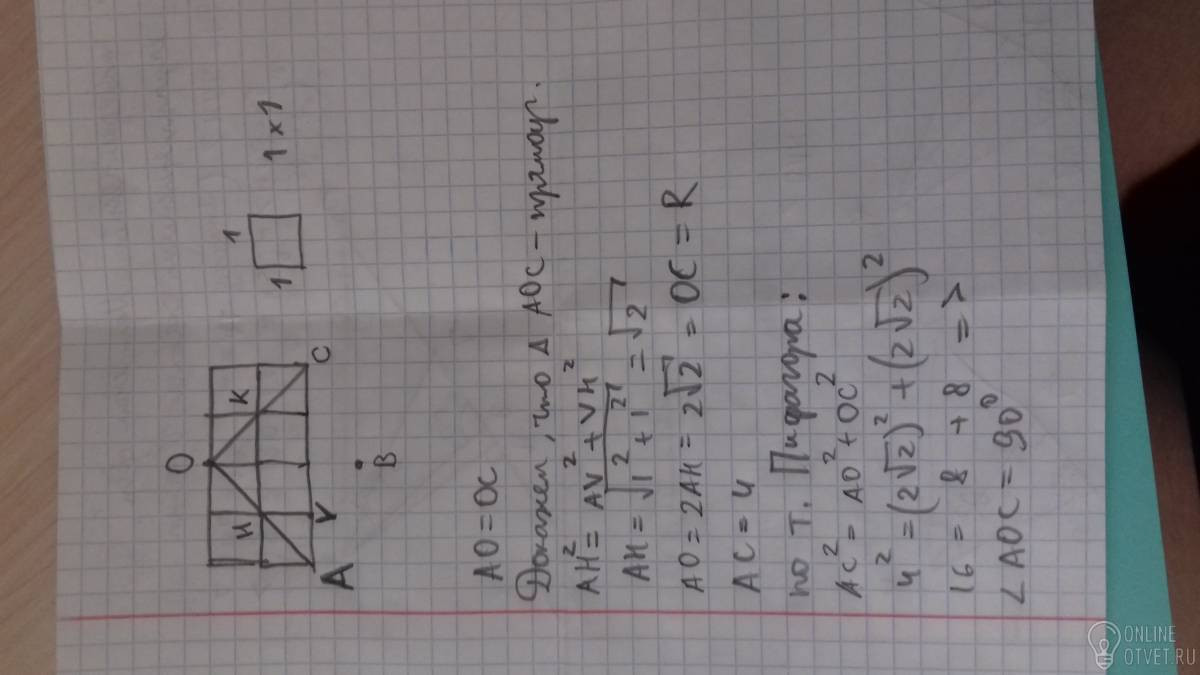 O
H K
A V C
B
1
1 1 x 1
AO = OC
Докажем, что Δ AOC – прямоуг.
AH² = AV² + VH²
AH = √1² + 1² = √2
AO = 2AH = 2√2 = OC = R
AC = 4
по т. Пифагора:
AC² = AO² + OC²
4² = (2√2)² + (2√2)²
16 = 8 + 8 =>
∠AOC = 90°
ONLINE
OTVET.RU